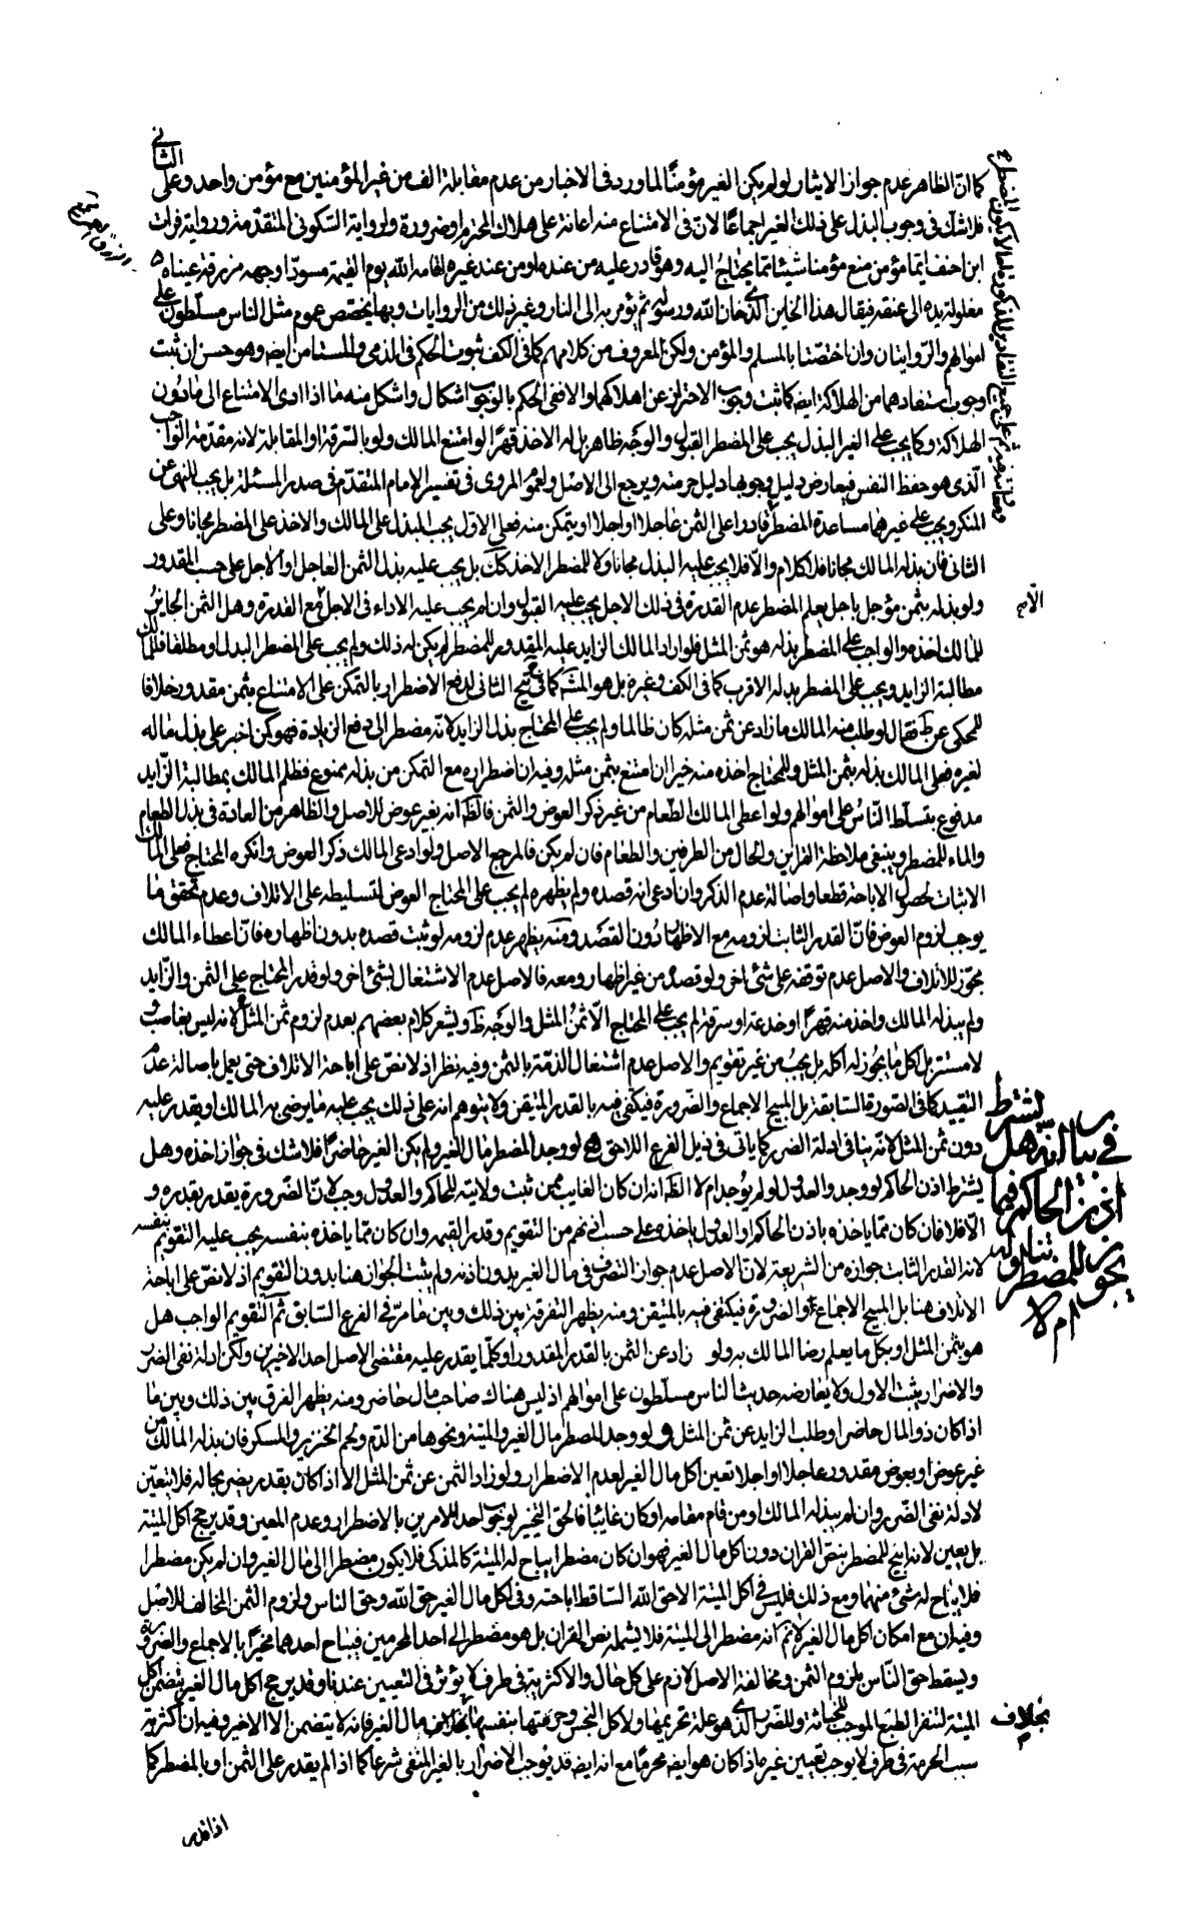 كما ان الظاهر عدم جواز الايثار لو لم يكن الغير مؤمنا لما ورد فى الاخبار من عدم مقابلة الف من غير المؤمنين مع مؤمن واحد وعلى الثانى
فلا شك فى وجوب البذل على ذلك الغير اجماعا لان فى الامتناع منه اعانة على هلاك المحترم او ضرورة ولرواية السكونى المتقدمة ورواية فرات
ابن احنف ايما مؤمن منع مؤمنا شيئا مما يحتاج اليه وهو قادر عليه من عنده او من عند غيره اقامه الله يوم القيمة مسودا وجهه مزرقة عيناه
مغلولة يده الى عنقه فيقال هذا الخاين الذى خان الله ورسوله ثم يؤمر به الى النار وغير ذلك من الروايات وبها يختص عموم مثل الناس مسلطون على
اموالهم والروايتان وان اختصتا بالمسلم والمؤمن ولكن المعروف من كلامهم كما فى الكف ثبوت الحكم فى الذمى والمستامن ايضه وهو حسن ان ثبت
وجوب استنقاذهما من الهلاكة ايضه كما ثبت وجوب الاحتراز عن اهلاكهما والا ففى الحكم بالوجوب اشكال واشكل منه ما اذا ادى الامتناع الى مادون
الهلاكة وكما يجب على الغير البذل يجب على المضطر القبول والوجه ظاهر بل له الاخذ قهرا لو امتنع المالك ولو بالسرقة او المقابلة لانه مقدمة الواجب
الذى هو حفظ النفس فيعارض دليل وجوبها دليل حرمته ويرجع الى الاصل ولعموم المروى فى تفسير الامام المتقدم فى صدر المسئلة بل يجب للنهى عن
المنكر ويجب على غيرهما مساعدة المضطر قادرا على الثمن عاجلا او اجلا او يتمكن منه فعلى الاول يجب البذل على المالك والاخذ على المضطر مجانا وعلى
الثانى فان بذله المالك مجانا فلا كلام والا فلا يجب عليه البذل مجانا ولا للمضطر الاخذ كك بل يجب عليه بذل الثمن العاجل او الاجل على حسب المقدور
ولو بذله بثمن مؤجل باجل يعلم المضطر عدم القدرة فى ذلك الاجل يجب عليه القبول وان لم يجب عليه الاداء فى الاجل مع القدرة وهل الثمن الجايز
للمالك اخذه والواجب على المضطر بذله هو ثمن المثل فلو اراد المالك الزايد عليه المقدور للمضطر لم يكن له ذلك ولم يجب على المضطر البدل او مطلقا فللمالك
مطالبة الزايد ويجب على المضطر بذله الاقرب كما فى الكف وغيره بل هو المشه كما فى ح الثانى لدفع الاضطرار بالتمكن على الامتناع بثمن مقدور خلافا
للمحكى عن ط فقال لو طلب منه المالك ما زاد عن ثمن مثله كان ظالما ولم يجب على المحتاج بذل الزايد لانه مضطر الى دفع الزيادة فهو كمن اجبر على بذل ماله
لغيره فعلى المالك بذله بثمن المثل وللمحتاج اخذه منه خيرا ان امتنع بثمن مثله وفيه ان اضطراره مع التمكن من بذله ممنوع فظلم المالك بمطالبة الزايد
مدفوع بتسلط الناس على اموالهم ولو اعطى المالك الطعام من غير ذكر العوض والثمن فالظ انه بغير عوض للاصل والظاهر من العادة فى بذل الطعام
والماء للمضطر وينبغى ملاحظة القراين والحال من الطرفين والطعام فان لم يكن فالمرجع الاصل ولو ادعى المالك ذكر العوض وانكره المحتاج فعلى المالك
الاثبات لحصول الاباحة قطعا واصالة عدم الذكر وان ادعى انه قصده ولم يظهره لم يجب على المحتاج العوض لتسليطه على الاتلاف وعدم تحقق ما
يوجب لزوم العوض فان القدر الثابت لزومه مع الاظهار دون القصد ومنه يظهر عدم لزومه لو ثبت قصده بدون اظهاره فان اعطاء المالك
مجوز للاتلاف والاصل عدم توقفه على شئ اخر ولو قصده من غير اظهار ومعه فالاصل عدم الاشتغال بشئ اخر ولو قدر المحتاج على الثمن والزايد
ولم يبذله المالك واخذ منه قهرا او خدعة او سرقة لم يجب على المحتاج الا ثمن المثل والوجه ظ ويشعر كلام بعضهم بعدم لزوم ثمن المثل لانه ليس بغاصب و
لا مستر بل اكل ما يجوز له اكله بل يجب من غير تقويم والاصل عدم اشتغال الذمة بالثمن وفيه نظر اذ لا نص على اباحة الاتلاف حتى يعمل باصالة عدم
التقييد كما فى الصورة السابقة بل المبيح الاجماع والضرورة فيكتفى فيه بالقدر المتيقن ولا يتوهم انه على ذلك يجب عليه ما يرضى به المالك او يقدر عليه
دون ثمن المثل لانه ينافى ادلة الضرر كما ياتى فى ذيل الفرع اللاحق لو وجد المضطر مال الغير ولم يكن الغير حاضرا فلا شك فى جواز اخذه وهل
يشترط اذن الحاكم لو وجد والعدول لو لم يوجد ام لا الظ انه ان كان الغايب ممن ثبت ولايته للحاكم والعدول وجب لان الضرورة يقدر بقدره و
الا فلا فان كان مما ياخذه باذن الحاكم او العدول ياخذه على حسب امرهم من التقويم وقدر القيمة وان كان مما ياخذه بنفسه يجب عليه التقويم بنفسه
لانه القدر الثابت جوازه من الشريعة لان الاصل عدم جواز التصرف فى مال الغير بدون اذنه ولم يثبت الجواز هنا بدون التقويم اذ لا نص على اباحة
الاتلاف هنا بل المبيح الاجماع والضرورة فيكتفى فيه بالمتيقن ومنه يظهر التفرقة بين ذلك وبين ما مر فى الفرع السابق ثم التقويم الواجب هل
هو بثمن المثل او بكل ما يعلم رضا المالك به ولو زاد عن الثمن بالقدر المقدور او كلما يقدر عليه مقتضى الاصل احد الاخيرين ولكن ادلة نفى الضرر
والاضرار يثبت الاول ولا يعارضه حديث الناس مسلطون على اموالهم اذ ليس هناك صاحب مال حاضر ومنه يظهر الفرق بين ذلك وبين ما
اذا كان ذو المال حاضرا وطلب الزايد عن ثمن المثل ولو وجد المضطر مال الغير والميتة ونحوها من الدم ولحم الخنزير والمسكر فان بذله المالك من
غير عوض او بعوض مقدور عاجلا او اجلا تعين اكل مال الغير لعدم الاضطرار ولو زاد الثمن عن ثمن المثل الا اذا كان بقدر يضر بحاله فلا يتعين
لادلة نفى الضرر وان لم يبذله المالك او من قام مقامه او كان غائبا فالحق التخيير لوجوب احد الامرين بالاضطرار وعدم المعين وقد يرجح اكل الميتة
بل يعين لانه ابيح للمضطر بنص القران دون اكل مال الغير فهو ان كان مضطرا يباح له الميتة كالمذكى فلا يكون مضطرا الى مال الغير وان لم يكن مضطرا
فلا يباح له شئ منهما ومع ذلك فليس فى اكل الميتة الا حق الله الساقط اباحته وفى اكل مال الغير حق الله وحق الناس ولزوم الثمن المخالف للاصل
وفيه ان مع امكان اكل مال الغير لا ثم انه مضطر الى الميتة فلا يشمله نص القران بل هو مضطر الى احد المحرمين فيباح احدهما مخيرا بالاجماع والضرورة
ويسقط حق الناس بلزوم الثمن ومخالفة الاصل لازم على كل حال والاكثرية فى طرف لا يؤثر فى التعيين عندنا وقد يرجح اكل مال الغير بتضمن اكل
الميتة لتنفر الطبع الموجب للخباثة وللضرر الذى هو علة تحريمها ولاكل النجس وحرمتها بنفسها بخلاف مال الغير فانه لا يتضمن الا الاخير وفيه ان اكثرية
سبب الحرمة فى طرف لا يوجب تعيين غيره اذا كان هو ايضه محرما مع انه ايضه قد يوجب الاضرار بالغير المنفى شرعا كما اذا لم يقدر على الثمن او بالمضطر كما
اذا قدر
فى بيان انه هل يشترط
اذن الحاكم فيما
يجوز للمضطر تناوله
ام لا
بخلاف